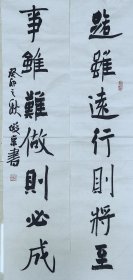 路雖遠行則將至
事雖難做則必成
癸卯之秋
書